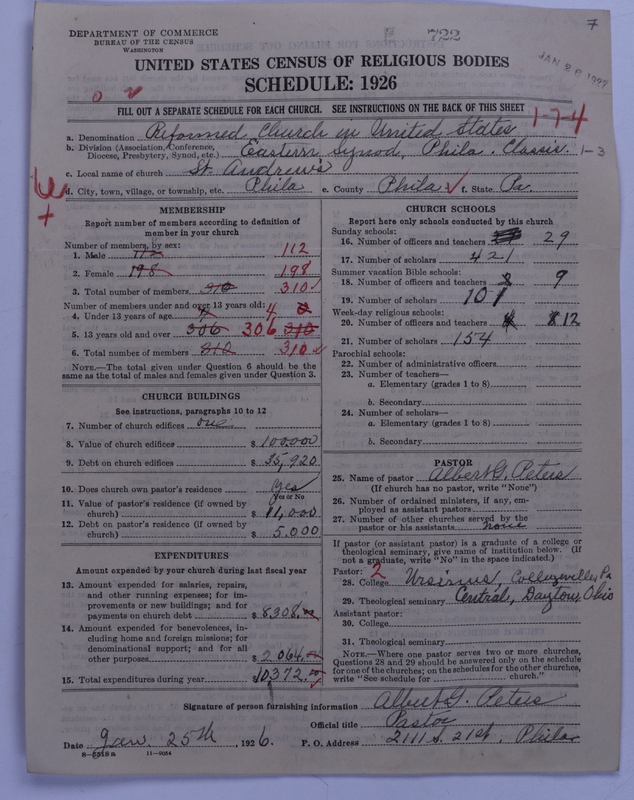 7
722
DEPARTMENT OF COMMERCE
BUREAU OF THE CENSUS
WASHINGTON
UNITED STATES CENSUS OF RELIGIOUS BODIES
SCHEDULE: 1926
FILL OUT A SEPARATE SCHEDULE FOR EACH CHURCH. SEE INSTRUCTIONS ON THE BACK OF THIS SHEET
1-7-4
a. Denomination Reformed Church in United States
b. Division (Association, Conference, Diocese, Presbytery, Synod, etc.) Eastern Synod, Phila. Classis. 1-3
c. Local name of church St. Andrew's
d. City, town, village, or township, etc. Phila e. County Phila f. State Pa.
MEMBERSHIP
Report number of members according to definition of
member in your church
Number of members, by sex:
1. Male 112 112
2. Female 198 198
3. Total number of members 310 310
Number of members under and over 13 years old:
4. Under 13 years of age 4
5. 13 years old and over 306 306 310
6. Total number of members 310 310
NOTE.—The total given under Question 6 should be
same as the total of males and females given under Question 3.
CHURCH BUILDINGS
See instructions, paragraphs 10 to 12
7. Number of church edifices one
8. Value of church edifices $ 100000
9. Debt on church edifices $ 35,920
10. Does church own pastor's residence Yes
Yes or No
11. Value of pastor's residence (if owned by
church) $ 11,000
12. Debt on pastor's residence (if owned by
church) $ 5,000
EXPENDITURES
Amount expended by your church during last fiscal year
13. Amount expended for salaries, repairs,
and other running expenses; for im-
provements or new buildings; and for
payments on church debt $ 8308.
14. Amount expended for benevolences, in-
cluding home and foreign missions; for
denominational support; and for all
other purposes $ 2,064.
15. Total expenditures during year $ 10,372.
CHURCH SCHOOLS
Report here only schools conducted by this church
Sunday schools:
16. Number of officers and teachers 29
17. Number of scholars 421
Summer vacation Bible schools:
18. Number of officers and teachers 9
19. Number of scholars 101
Week-day religious schools:
20. Number of officers and teachers 12
21. Number of scholars 154
Parochial schools:
22. Number of administrative officers
23. Number of teachers—
a. Elementary (grades 1 to 8)
b. Secondary
24. Number of scholars—
a. Elementary (grades 1 to 8)
b. Secondary
PASTOR
25. Name of pastor Albert G. Peters
(If church has no pastor, write "None")
26. Number of ordained ministers, if any, em-
ployed as assistant pastors
27. Number of other churches served by the
pastor or his assistants none
If pastor (or assistant pastor) is a graduate of a college or
theological seminary, give name of institution below. (If
not a graduate, write "No" in the space indicated.)
Pastor: 2
28. College Ursinus, Collegeville, Pa
29. Theological seminary Central, Dayton, Ohio
Assistant pastor:
30. College
31. Theological seminary
NOTE.—Where one pastor serves two or more churches,
Questions 28 and 29 should be answered only on the schedule
for one of the churches; on the schedules for the other churches,
write "See schedule for church."
Signature of person furnishing information Albert G. Peters
Official title Pastor
Date Jan. 25th, 1926. P. O. Address 2111 S. 21st, Phila
11-9054